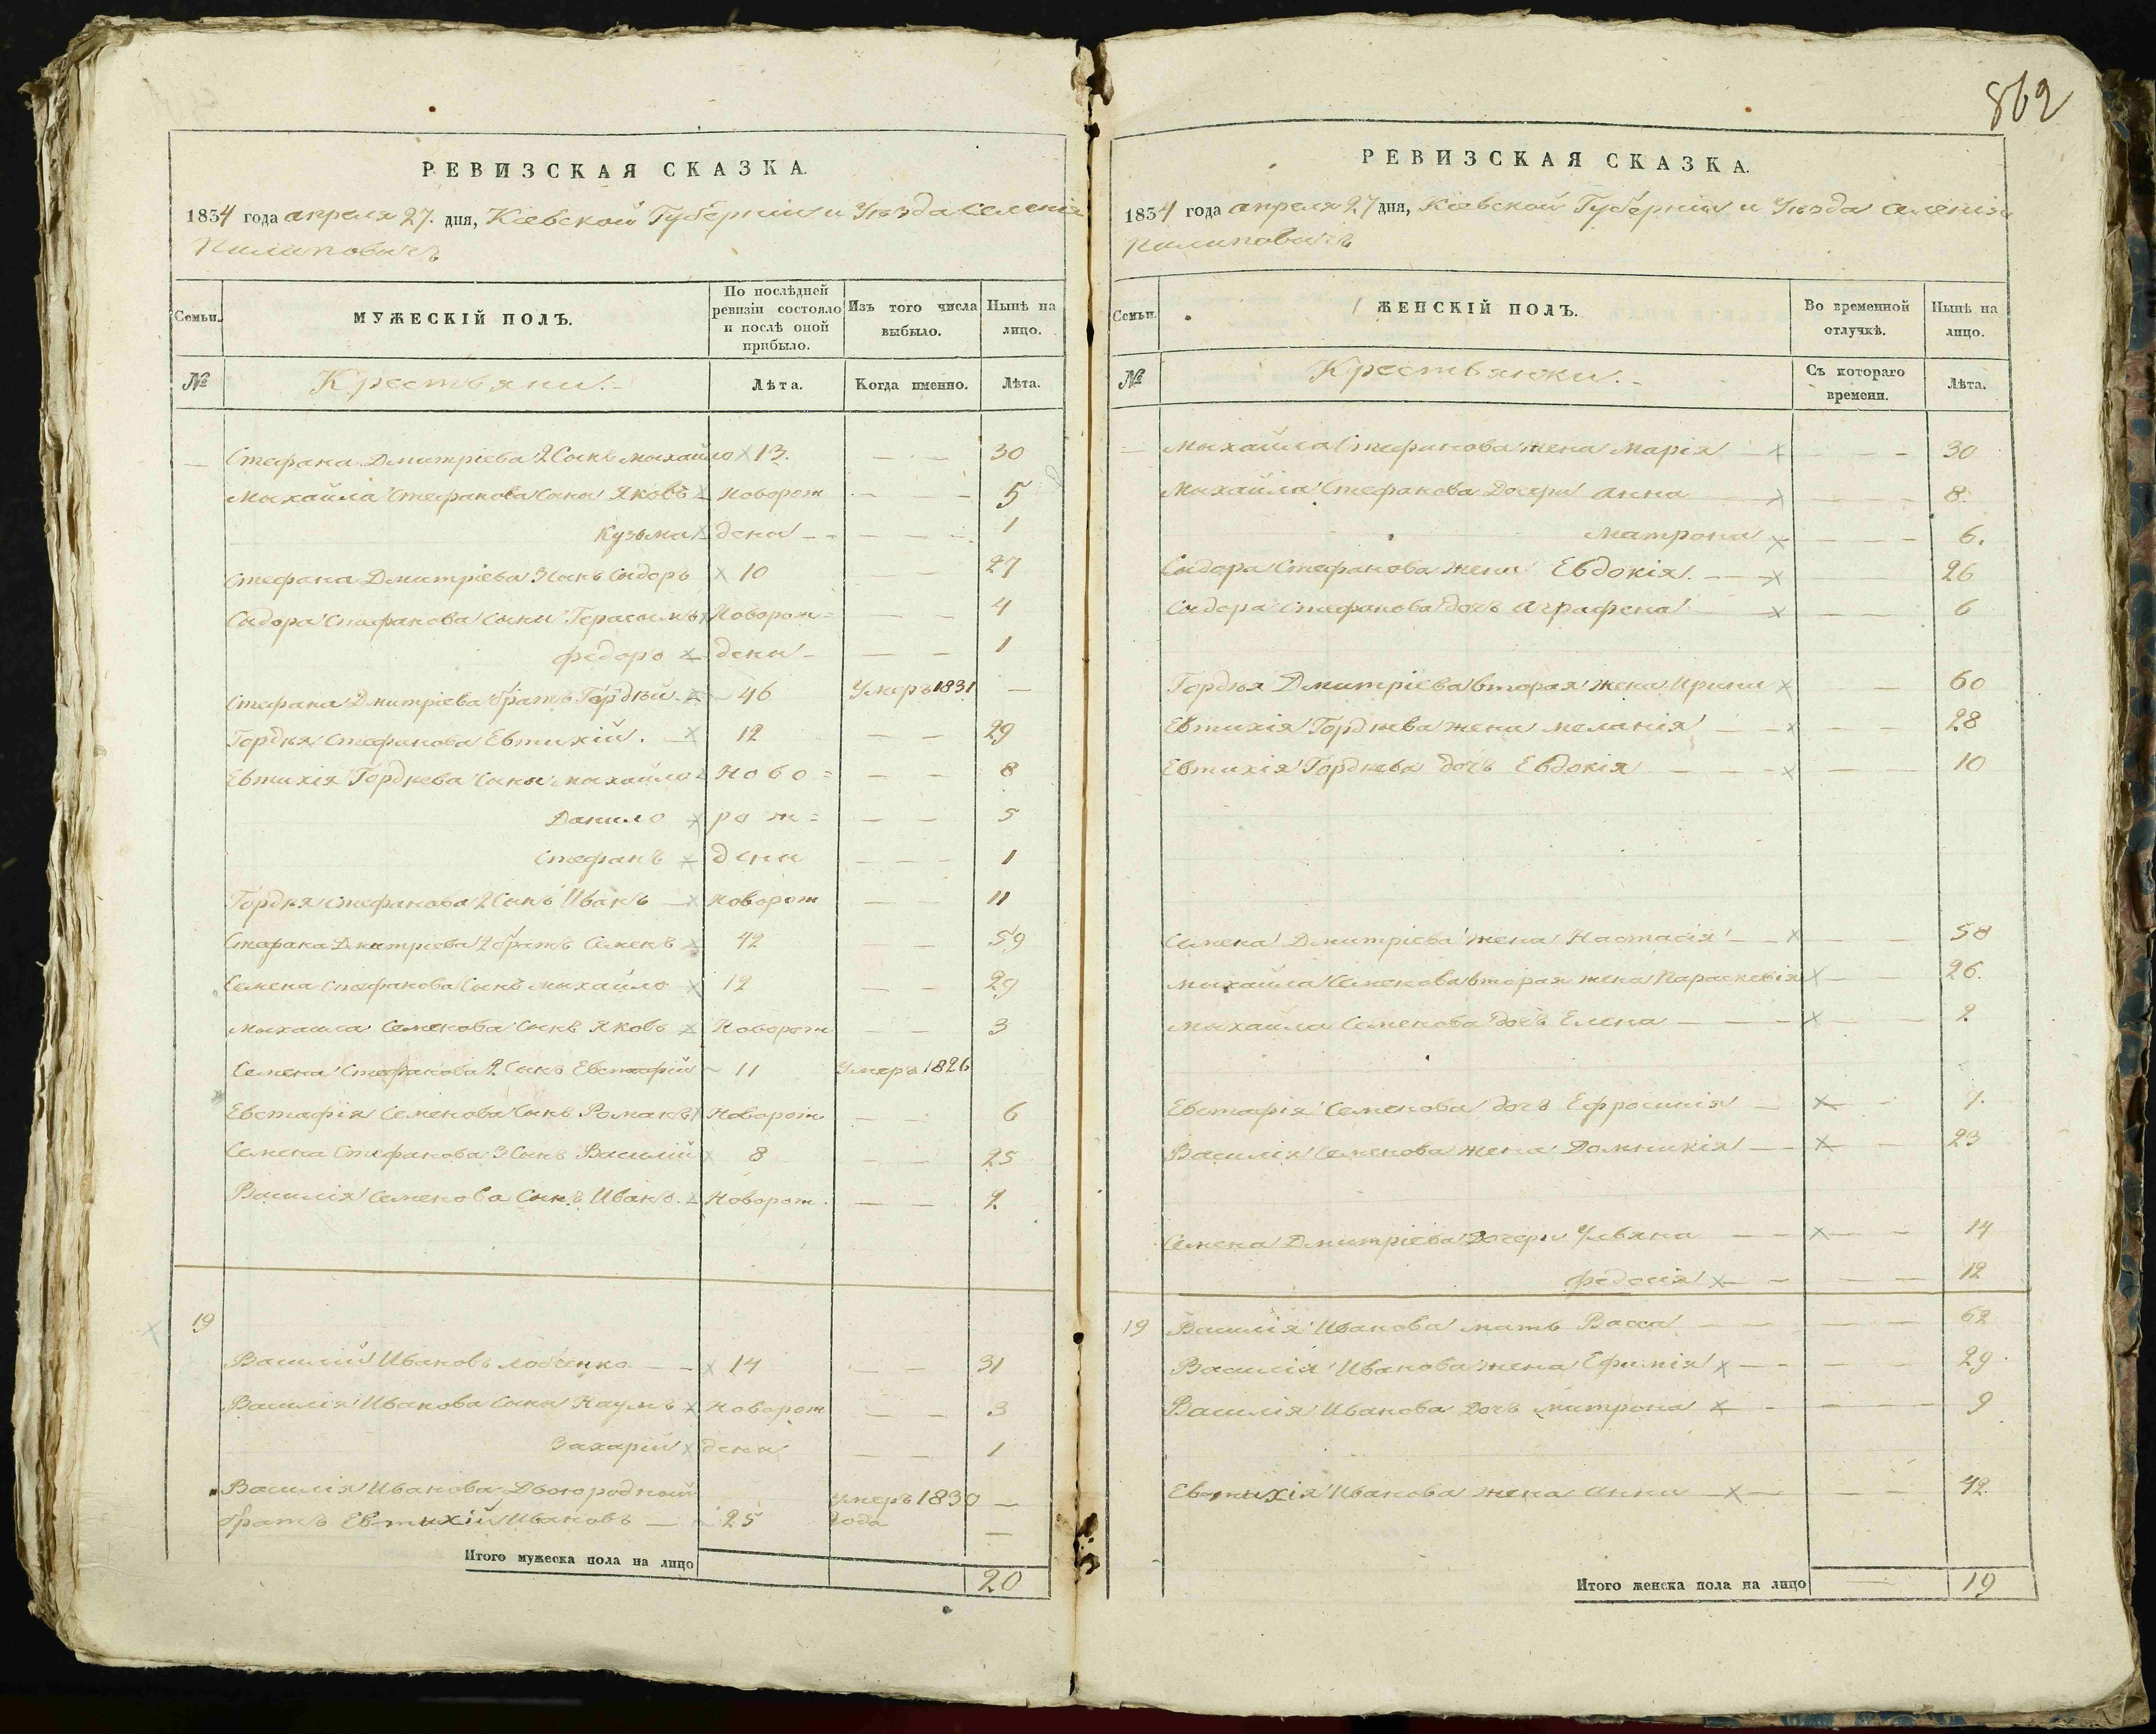 862
РЕВИЗСКАЯ СКАЗКА.
1834 года апреля 27. дня, Кіевской Губерніи и Уѣзда Селенія
Пилиповичъ
Семьи.
МУЖЕСКІЙ ПОЛЪ.
По послѣдней ревизіи состояло и послѣ оной прибыло.
Изъ того числа выбыло.
Нынѣ на лицо.
№
Крестьяни.
Лѣта.
Когда именно.
Лѣта.
Стефана Дмитріева 2 Сынъ Михайло 13. 30
Михайла Стефанова Сыны Яковъ Новорож 5
Кузьма дены 1
Стефана Дмитріева 3 Сынъ Сыдоръ 10 27
Сыдора Стефанова Сыны Герасымъ Новорож= 4
Федоръ дены 1
Стефана Дмитріева братъ Гордѣй. 46 Умеръ 1831 —
Гордѣя Стефанова Евтихій. 12 29
Евтихія Гордѣева Сыны Михайло Ново= 8
Данило рож= 5
Стефанъ дены 1
Гордѣя Стефанова 2 Сынъ Иванъ Новорож 11
Стефана Дмитріева 2 братъ Семенъ 42 59
Семена Стефанова Сынъ Михайло 12 29
Михайла Семенова Сынъ Яковъ Новорож 3
Семена Стефанова 2 Сынъ Евстафій 11 Умеръ 1826
Евстафія Семенова Сынъ Романъ Новорож 6
Семена Стефанова 3 Сынъ Василій 8 25
Василія Семенова Сынъ Иванъ. Новорож. 2.
19
Василій Ивановъ Лобченко 14 31
Василія Иванова Сыны Наумъ Новорож 3
Захарій дены 1
Василія Иванова Двоюродный
братъ Евтихій Ивановъ 25 умеръ 1830 года —
Итого мужеска пола на лицо 20
РЕВИЗСКАЯ СКАЗКА.
1834 года апреля 27 дня, Кіевской Губерніи и Уѣзда Селенія
Пилиповичъ
Семьи.
ЖЕНСКІЙ ПОЛЪ.
Во временной отлучкѣ.
Нынѣ на лицо.
№
Крестьянки.
Съ котораго времени.
Лѣта.
Михайла Стефанова жена Марія 30
Михайла Стефанова Дочери Анна 8.
Матрона 6.
Сыдора Стефанова жена Евдокія. 26
Сыдора Стефанова дочь Аграфена 6
Гордѣя Дмитріева вторая жена Ирина 60
Евтихія Гордѣева жена Меланія 28
Евтихія Гордѣева дочь Евдокія 10
Семена Дмитріева жена Настасія 58
Михайла Семенова вторая жена Параскевія 26.
Михайла Семенова дочь Елена 2
Евстафія Семенова дочь Ефросинія
Василія Семенова жена Домникія 23
Семена Дмитріева Дочери Ульяна 14
Федосія 12
19 Василія Иванова мать Васса 62
Василія Иванова жена Ефимія 29.
Василія Иванова дочь Митрона 9
Евтихія Иванова жена Анна 42
Итого женска пола на лицо 19